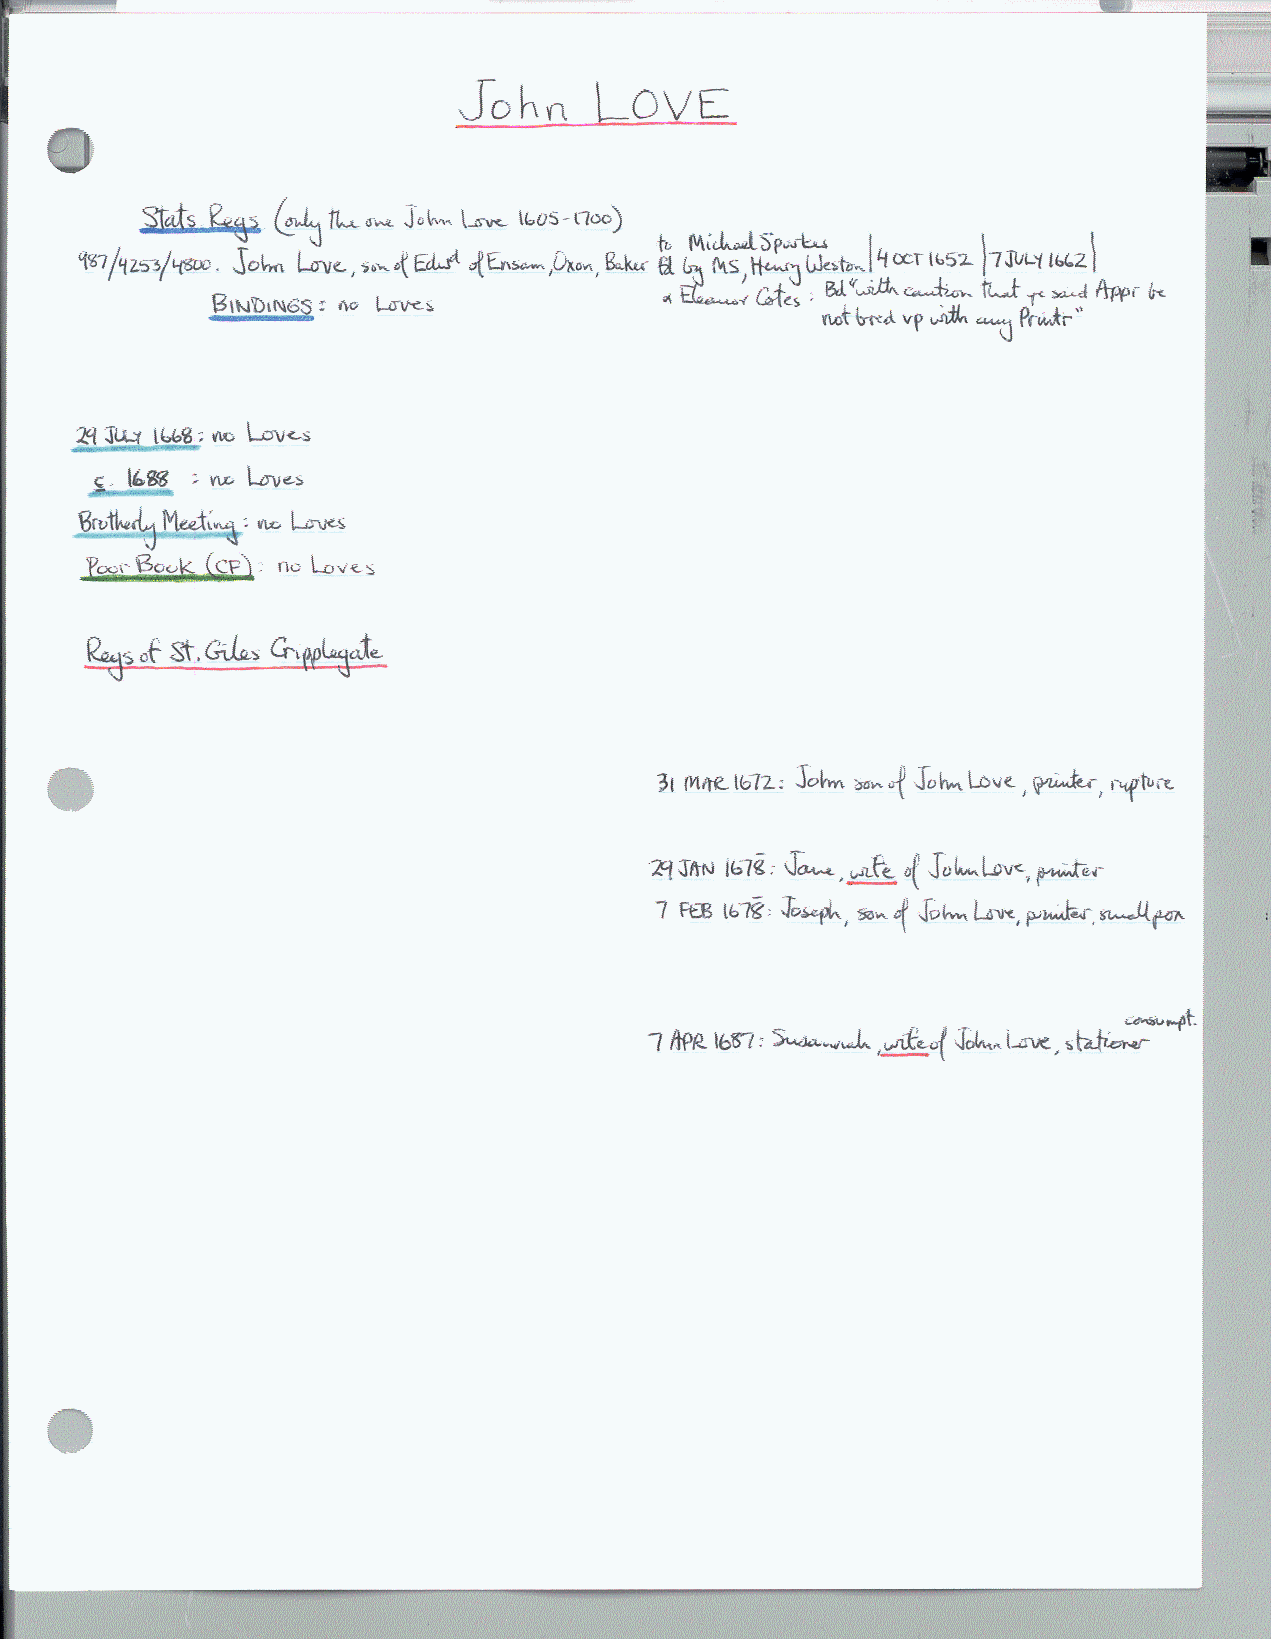 John LOVE
Stats Regs (only the one John Love 1605-1700)
987/4253/4800. John Love, son of Edwd of Ensam, Oxon, Baker
to Michael Sparkes
fd by MS, Henry Weston | 4 OCT 1652 | 7 JULY 1662 |
& Eleanor Cotes : Bd "with caution that ye said Appr be
not bred vp with any Printr"
BINDINGS : no Loves
29 JULY 1668 : no Loves
c. 1688 : no Loves
Brotherly Meeting : no Loves
Poor Book (CF) : no Loves
Regs of St. Giles Cripplegate
31 MAR 1672 : John son of John Love, printer, rupture
29 JAN 1678 : Jane, wife of John Love, printer
7 FEB 1678 : Joseph, son of John Love, printer, smallpox
7 APR 1687 : Susannah, wife of John Love, stationer consumpt.